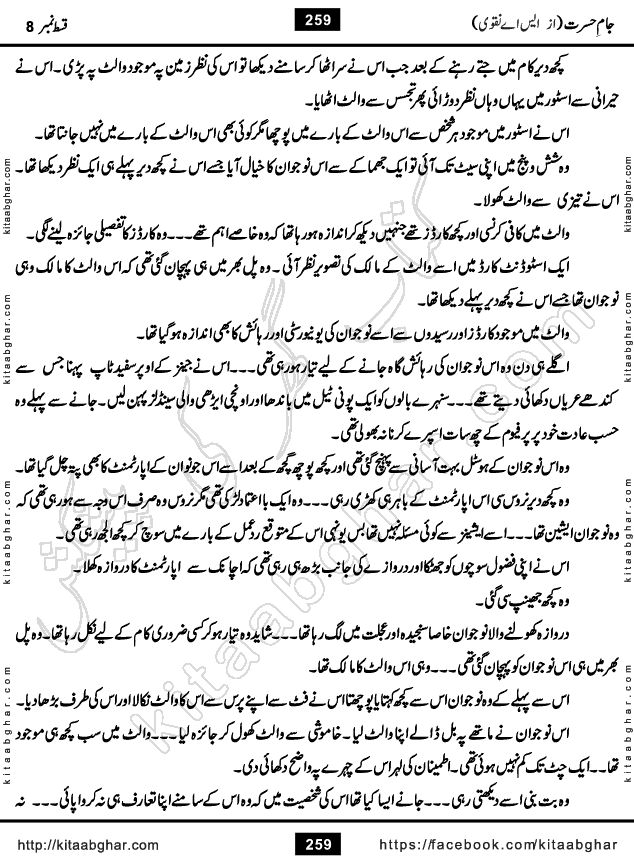 جامِ حسرت (از ایس اے نقوی)
259
قسط نمبر 8
کچھ دیر کام میں جتے رہنے کے بعد جب اس نے سر اٹھا کر سامنے دیکھا تو اس کی نظر زمین پہ موجود والٹ پہ پڑی۔ اس نے
حیرانی سے اسٹور میں یہاں وہاں نظر دوڑائی پھر تجسس سے والٹ اٹھایا۔
اس نے اسٹور میں موجود ہر شخص سے اس والٹ کے بارے میں پوچھا مگر کوئی بھی اس والٹ کے بارے میں نہیں جانتا تھا۔
وہ شش و پنج میں اپنی سیٹ تک آئی تو ایک جھماکے سے اس نوجوان کا خیال آیا جسے اس نے کچھ دیر پہلے ہی ایک نظر دیکھا تھا۔
اس نے تیزی سے والٹ کھولا۔
والٹ میں کافی کرنسی اور کچھ کارڈز تھے جنہیں دیکھ کر اندازہ ہو رہا تھا کہ وہ خاصے اہم تھے۔۔۔وہ کارڈز کا تفصیلی جائزہ لینے لگی۔
ایک اسٹوڈنٹ کارڈ میں اسے والٹ کے مالک کی تصویر نظر آئی۔ وہ پل بھر میں ہی پہچان گئی تھی کہ اس والٹ کا مالک وہی
نوجوان تھا جسے اس نے کچھ دیر پہلے دیکھا تھا۔
والٹ میں موجود کارڈز اور رسیدوں سے اسے نوجوان کی یونیورسٹی اور رہائش کا بھی اندازہ ہو گیا تھا۔
اگلے ہی دن وہ اس نوجوان کی رہائش گاہ جانے کے لیے تیار ہو رہی تھی۔۔۔اس نے جینز کے اوپر سفید ٹاپ پہنا جس سے
کندھے عریاں دکھائی دیتے تھے۔۔۔سنہرے بالوں کو ایک پونی ٹیل میں باندھا اور اونچی ایڑھی والی سینڈلز پہن لیں۔ جانے سے پہلے وہ
حسب عادت خود پر پرفیوم کے چھ سات اسپرے کرنا نہ بھولی تھی۔
وہ اس نوجوان کے ہوسٹل بہت آسانی سے پہنچ گئی تھی اور کچھ پوچھ گچھ کے بعد اسے اس جونوان کے اپارٹمنٹ کا بھی پتہ چل گیا تھا۔
وہ کچھ دیر نروس سی اس اپارٹمنٹ کے باہر ہی کھڑی رہی۔۔۔وہ ایک بااعتماد لڑکی تھی مگر نروس وہ صرف اس وجہ سے ہو رہی تھی کہ
وہ نوجوان ایشین تھا۔۔۔اسے ایشینز سے کوئی مسئلہ نہیں تھا بس یونہی اس کے متوقع ردعمل کے بارے میں سوچ کر کچھ الجھ رہی تھی۔
اس نے اپنی فضول سوچوں کو جھٹکا اور دروازے کی جانب بڑھ ہی رہی تھی کہ اچانک سے اپارٹمنٹ کا دروازہ کھلا۔
وہ کچھ جھینپ سی گئی۔
دروازہ کھولنے والا نوجوان خاصا سنجیدہ اور عجلت میں لگ رہا تھا۔۔۔شاید وہ تیار ہو کر کسی ضروری کام کے لیے نکل رہا تھا۔ وہ پل
بھر میں ہی اس نوجوان کو پہچان گئی تھی۔۔۔وہی اس والٹ کا مالک تھا۔
اس سے پہلے کے وہ نوجوان اس سے کچھ کہتا یا پوچھتا اس نے فٹ سے اپنے پرس سے اس کا والٹ نکالا اور اس کی طرف بڑھا دیا۔
اس نوجوان نے ماتھے پہ بل ڈالے اپنا والٹ لیا۔ خاموشی سے والٹ کھول کر جائزہ لیا۔۔۔والٹ میں سب کچھ ہی موجود
تھا۔۔۔ایک چٹ تک کم نہیں ہوئی تھی۔ اطمینان کی لہر اس کے چہرے پہ واضح دکھائی دی۔
وہ بت بنی اسے دیکھتی رہی۔۔۔جانے ایسا کیا تھا اس کی شخصیت میں کہ وہ اس کے سامنے اپنا تعارف ہی نہ کروا پائی۔۔۔ نہ
kitaabghar.com
kitaabghar.com
kitaabghar.com
kitaabghar.com
kitaabghar.com
kitaabghar.com
kitaabghar.com
kitaabghar.com
کتاب گھر کی پیشکش
kitaabghar.com
http://kitaabghar.com
259
https://facebook.com/kitaabghar